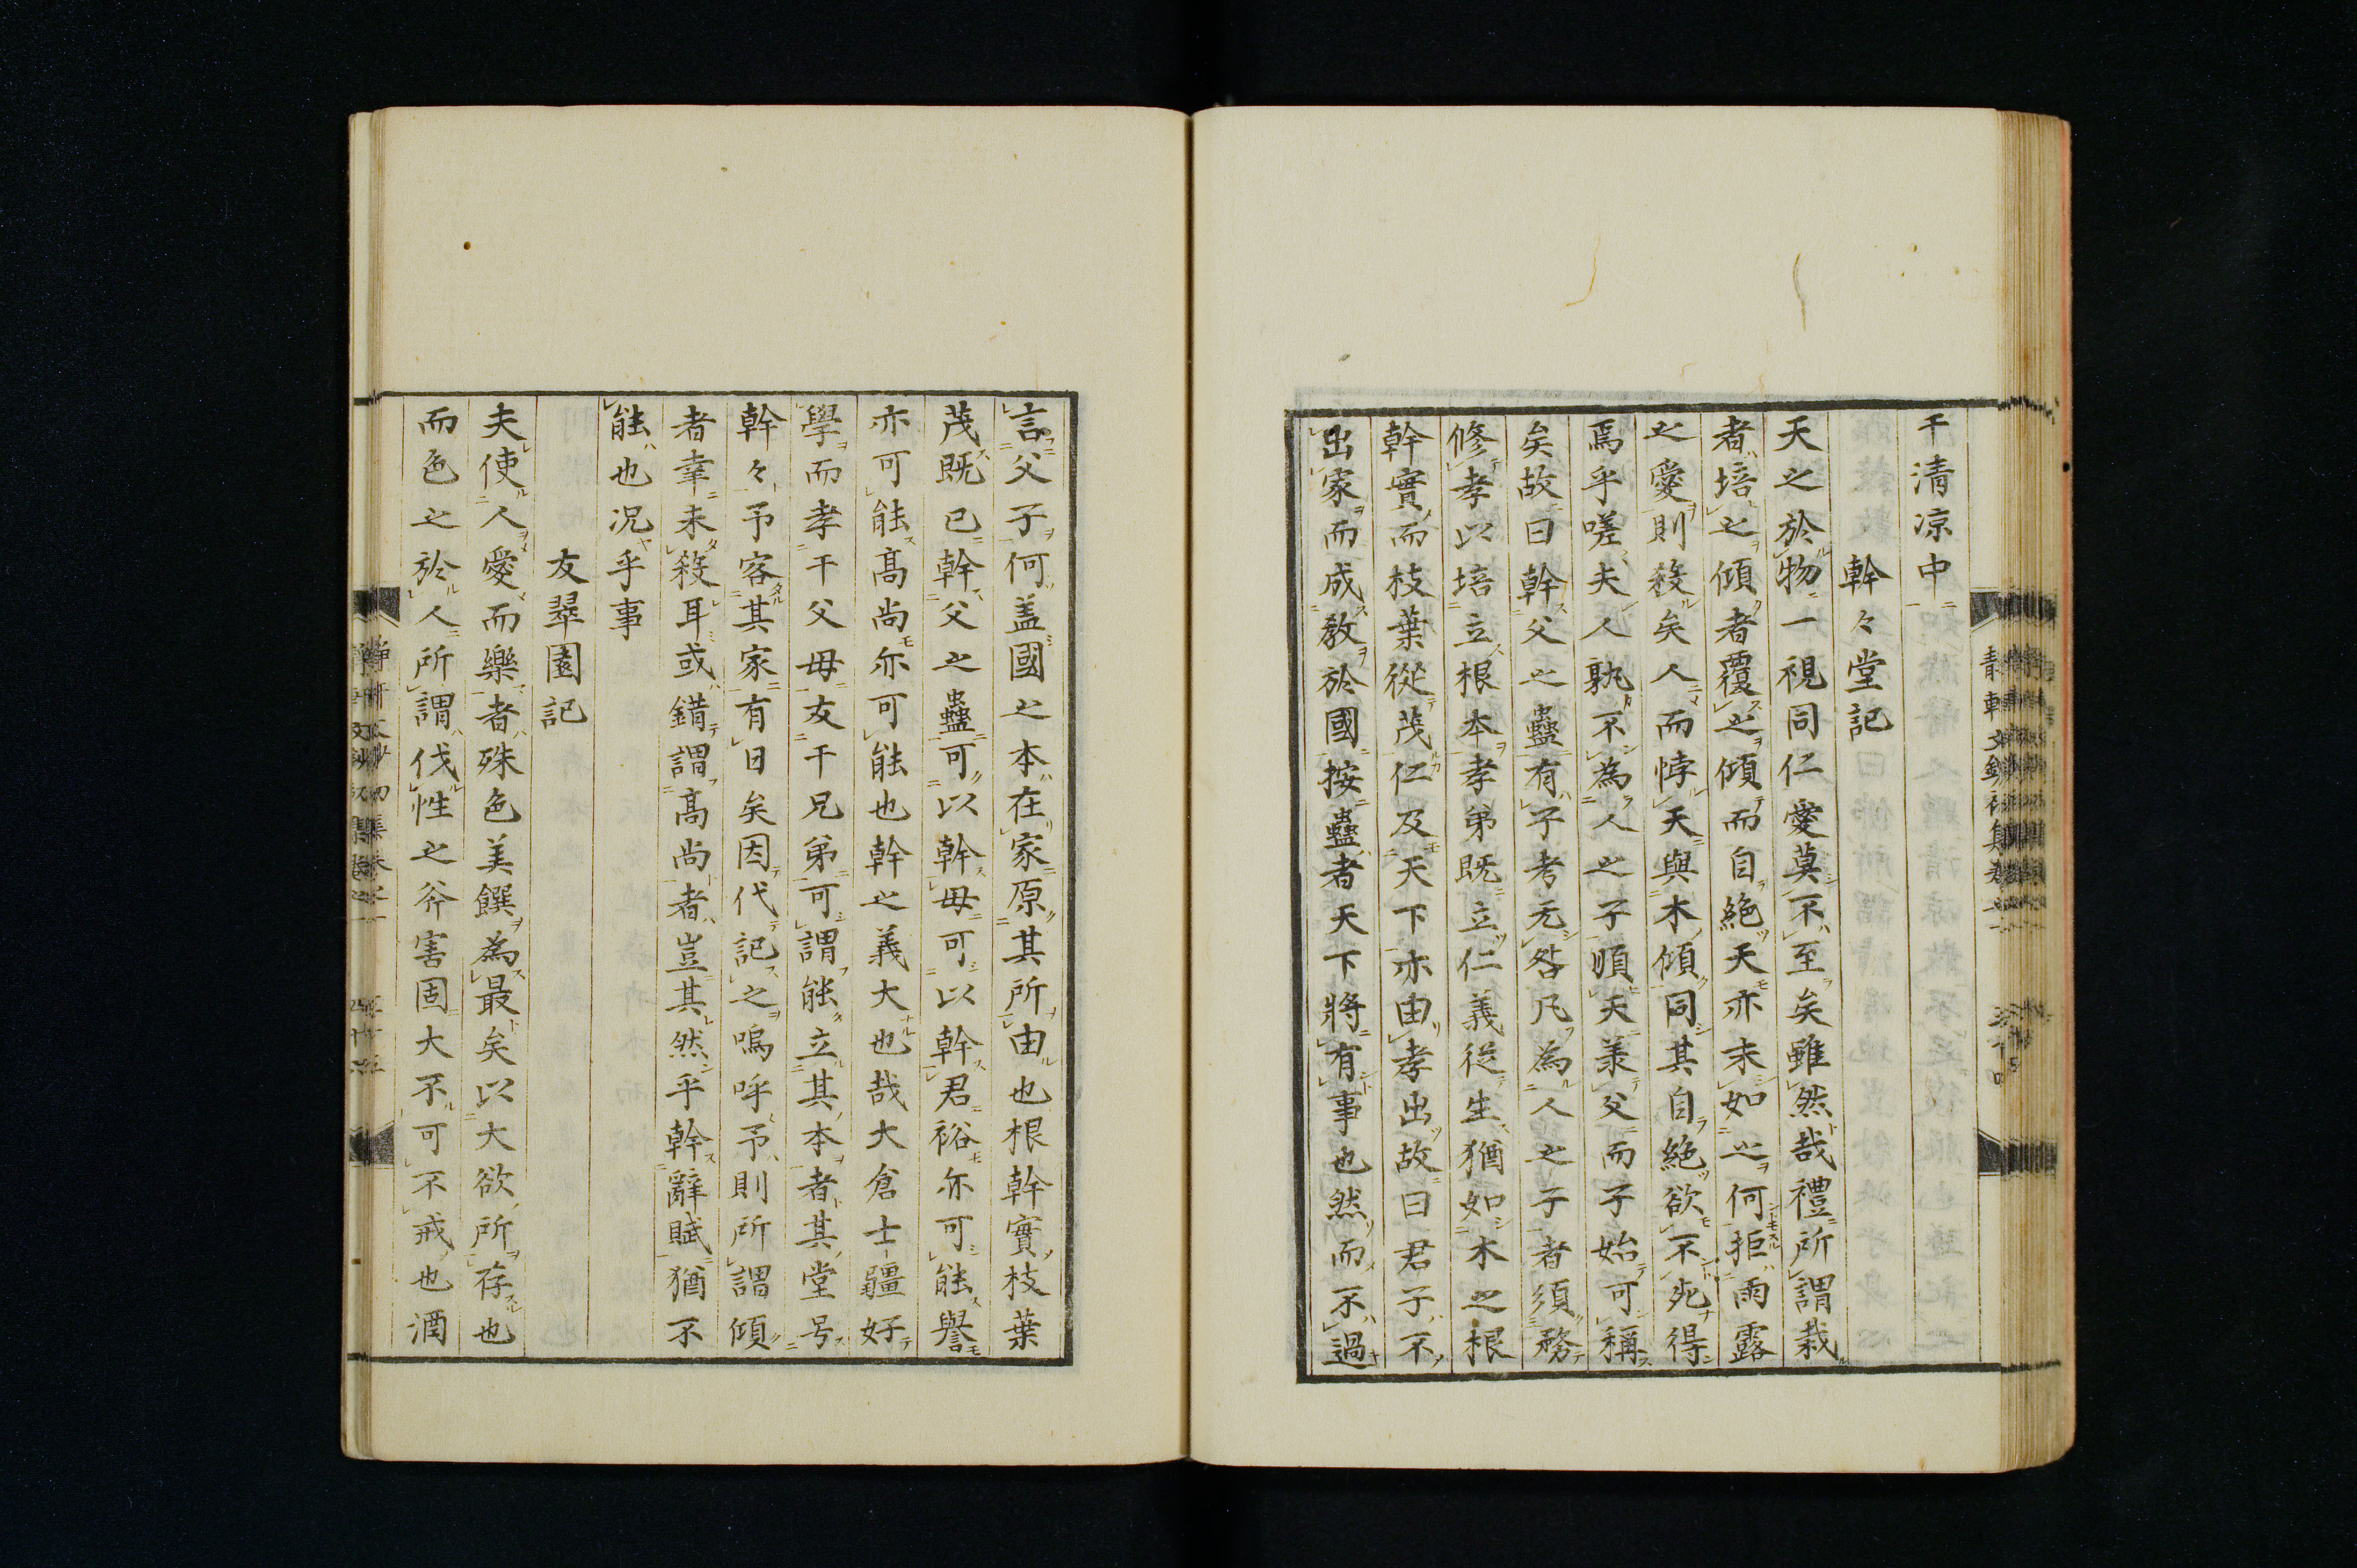 干清凉中
幹々堂記
天之於物一視同仁愛莫不至矣雖然哉禮所謂栽
者培之傾者覆之傾而自絶天亦未如之何拒雨露
之愛則殺矣人而悖天與木傾同其自絶欲不死得
焉乎嗟夫人孰不為人之子順天羕父而子始可稱
矣故曰幹父之蠱有子考无咎凡為人之子者須務
修孝以培立根本孝弟既立仁義從生猶如木之根
幹實而枝葉從茂仁及天下亦由孝出故曰君子不
出家而成教於國按蠱者天下將有事也然而不過
言父子何盖國之本在家原其所由也根幹實枝葉
茂既已幹父之蠱可以幹母可以幹君裕亦可能譽
亦可能髙尚亦可能也幹之義大也哉大倉士疆好
學而孝干父母友干兄弟可謂能立其本者其堂号
幹々予客其家有日矣因代記之嗚呼予則所謂傾
者幸未殺耳或錯謂髙尚者豈其然乎幹辭賦猶不
能也况乎事
友翠園記
夫使人愛而樂者殊色美饌為最矣以大欲所存也
而色之於人所謂伐性之斧害固大不可不戒也酒